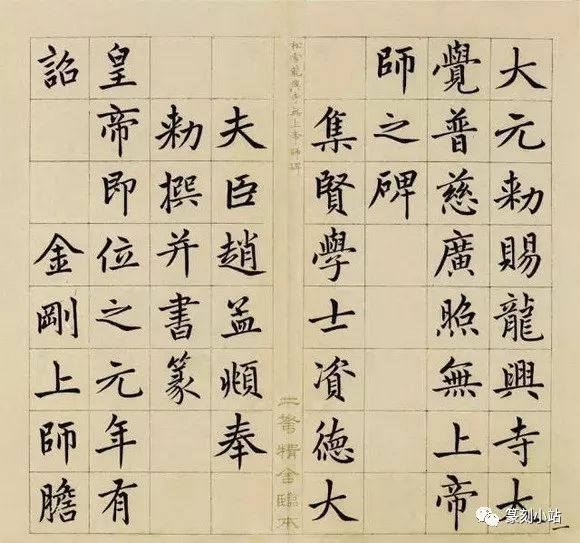 大元勑賜龍興寺大
覺普慈廣照無上帝
師之碑
集賢學士資德大
松雪龍興寺無上帝師碑
二弩精舍臨本
夫臣趙孟頫奉
勑撰并書篆
皇帝即位之元年有
詔金剛上師膽
一
篆刻小站